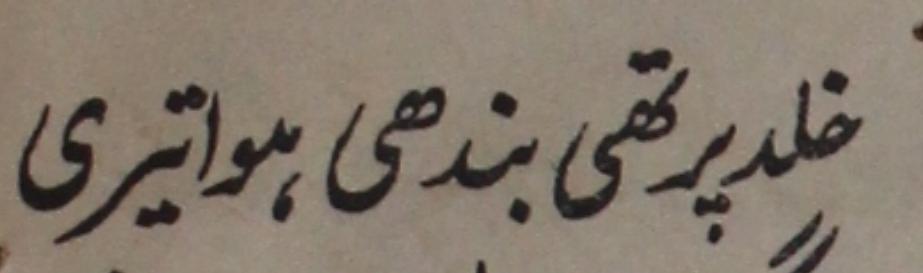 خلد پر تھی بندھی ہوا تیری